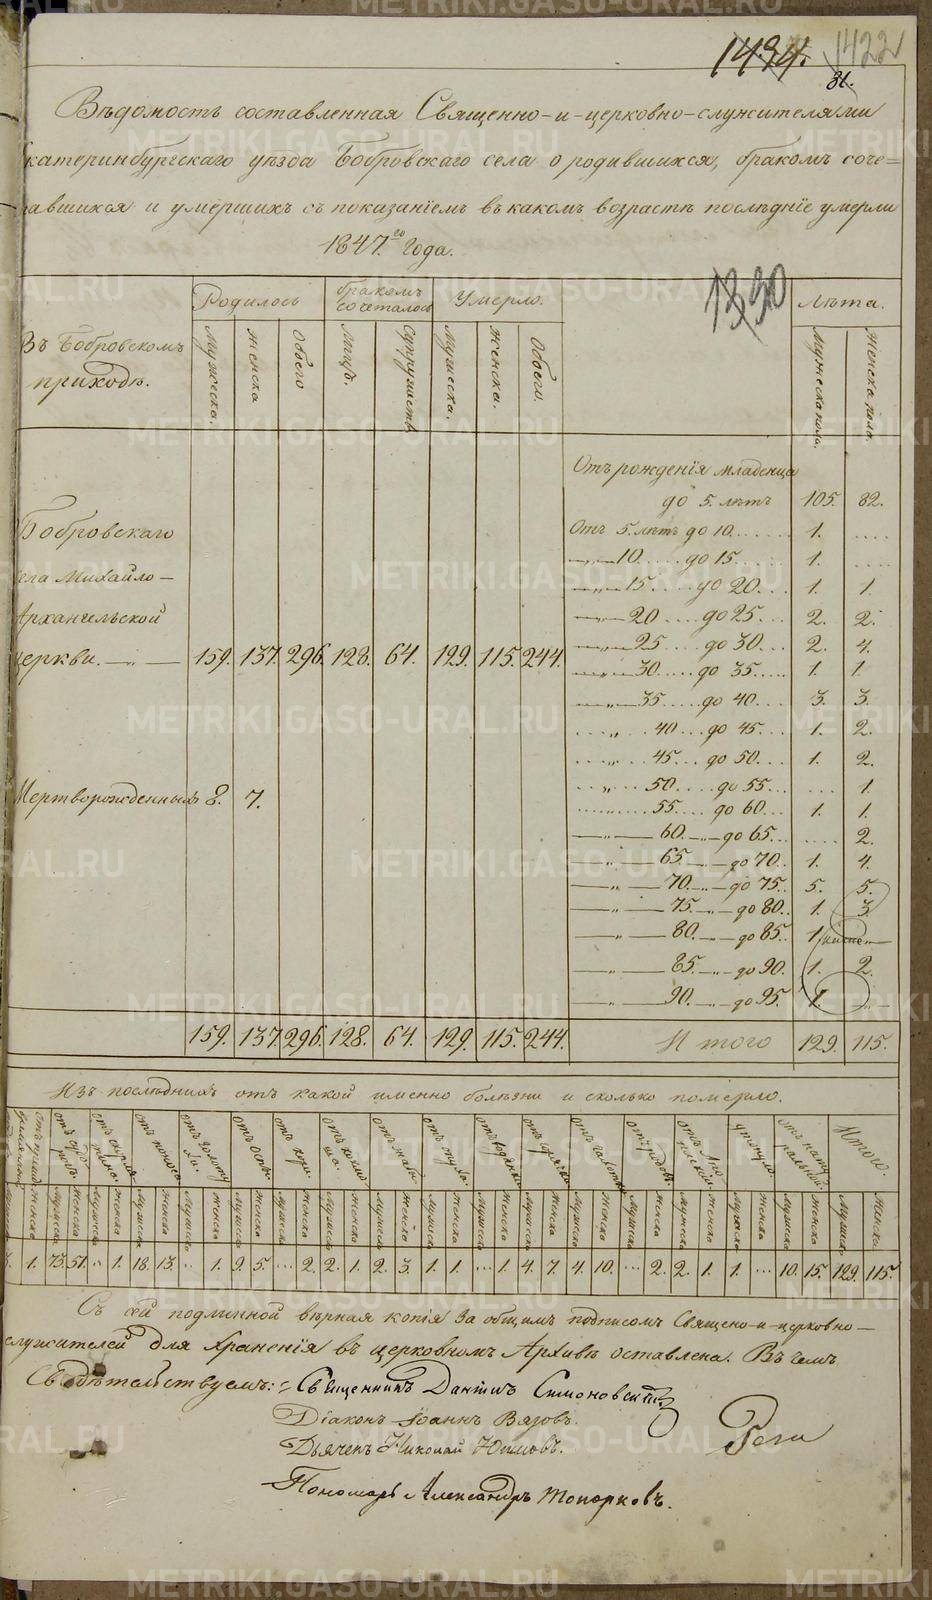 1494. 1422
81.
Вѣдомость составленная Священно-и-церковно-служителями
катеринбургскаго уѣзда Бобровскаго села о родившихся, бракомъ соче=
тавшихся и умершихъ съ показаніемъ въ какомъ возрастѣ послѣдніе умерли
1847.го Года.
Родилось бракомъ сочеталось Умерло. Лѣта.
Въ Бобровскомъ приходѣ. Мужеска. Женска Обоего Лицъ. Супружествъ Мужеска. Женска. Обоего. Мужеска пола. Женска пола.
Отъ рожденія младенца
до 5. лѣтъ 105. 82.
Бобровскаго Отъ 5. лѣтъ до 10. 1. ....
10. до 15. 1. ....
села Михайло-
15. до 20. 1. 1.
Архангельской 20 до 25. 2. 2.
25. до 30. 2. 4.
церкви. 159. 137. 296. 128. 64. 129. 115. 244.
30. до 35. 1. 1.
35. до 40. 3. 3.
40. до 45. 1. 2.
45. до 50. 1. 2.
50. до 55. ... 1.
Мертворожденныхъ 8. 7.
55. до 60. 1. 1.
60. до 65. .... 2.
65. до 70. 1. 4.
70. до 75. 5. 5.
75. до 80. 1. 3.
80. до 85. 1
85. до 90. 1. 2.
90. до 95. 1.
159. 137. 296. 128. 64. 129. 115. 244. Итого 129. 115.
Изъ послѣднихъ отъ какой именно болѣзни и сколько померло.
Итого.
Женска Мужеска Женска Мужеска Женска Мужеска Женска Мужеска Женска Мужеска Женска Мужеска Женска Мужеска Женска Мужеска Женска Мужеска Женска Мужеска Женска Мужеска Женска Мужеска Женска Мужеска Женска Мужеска Женска Мужеска Женска Мужеска Женска Мужеска Женска
1. 73. 51. .. 1. 18. 13. .. 1. 9. 5. ... 2. 2. 1. 2. 3. 1. 1. ... 1. 4. 7. 4. 10. ... 2. 2. 1. 1. ... 10. 15. 129. 115.
Съ сей подлинной вѣрная копія за общимъ подписомъ Священо-и-церковно-
служителей для храненія въ церковномъ Архивѣ оставлена. Въ чемъ
Свидѣтельствуемъ: Священникъ Даніилъ Симоновскій
Діаконъ Іоаннъ Вязовъ.
Дьячекъ Николай
Пономарь Александръ Топорковъ.
METRIKI.GASO-URAL.RU